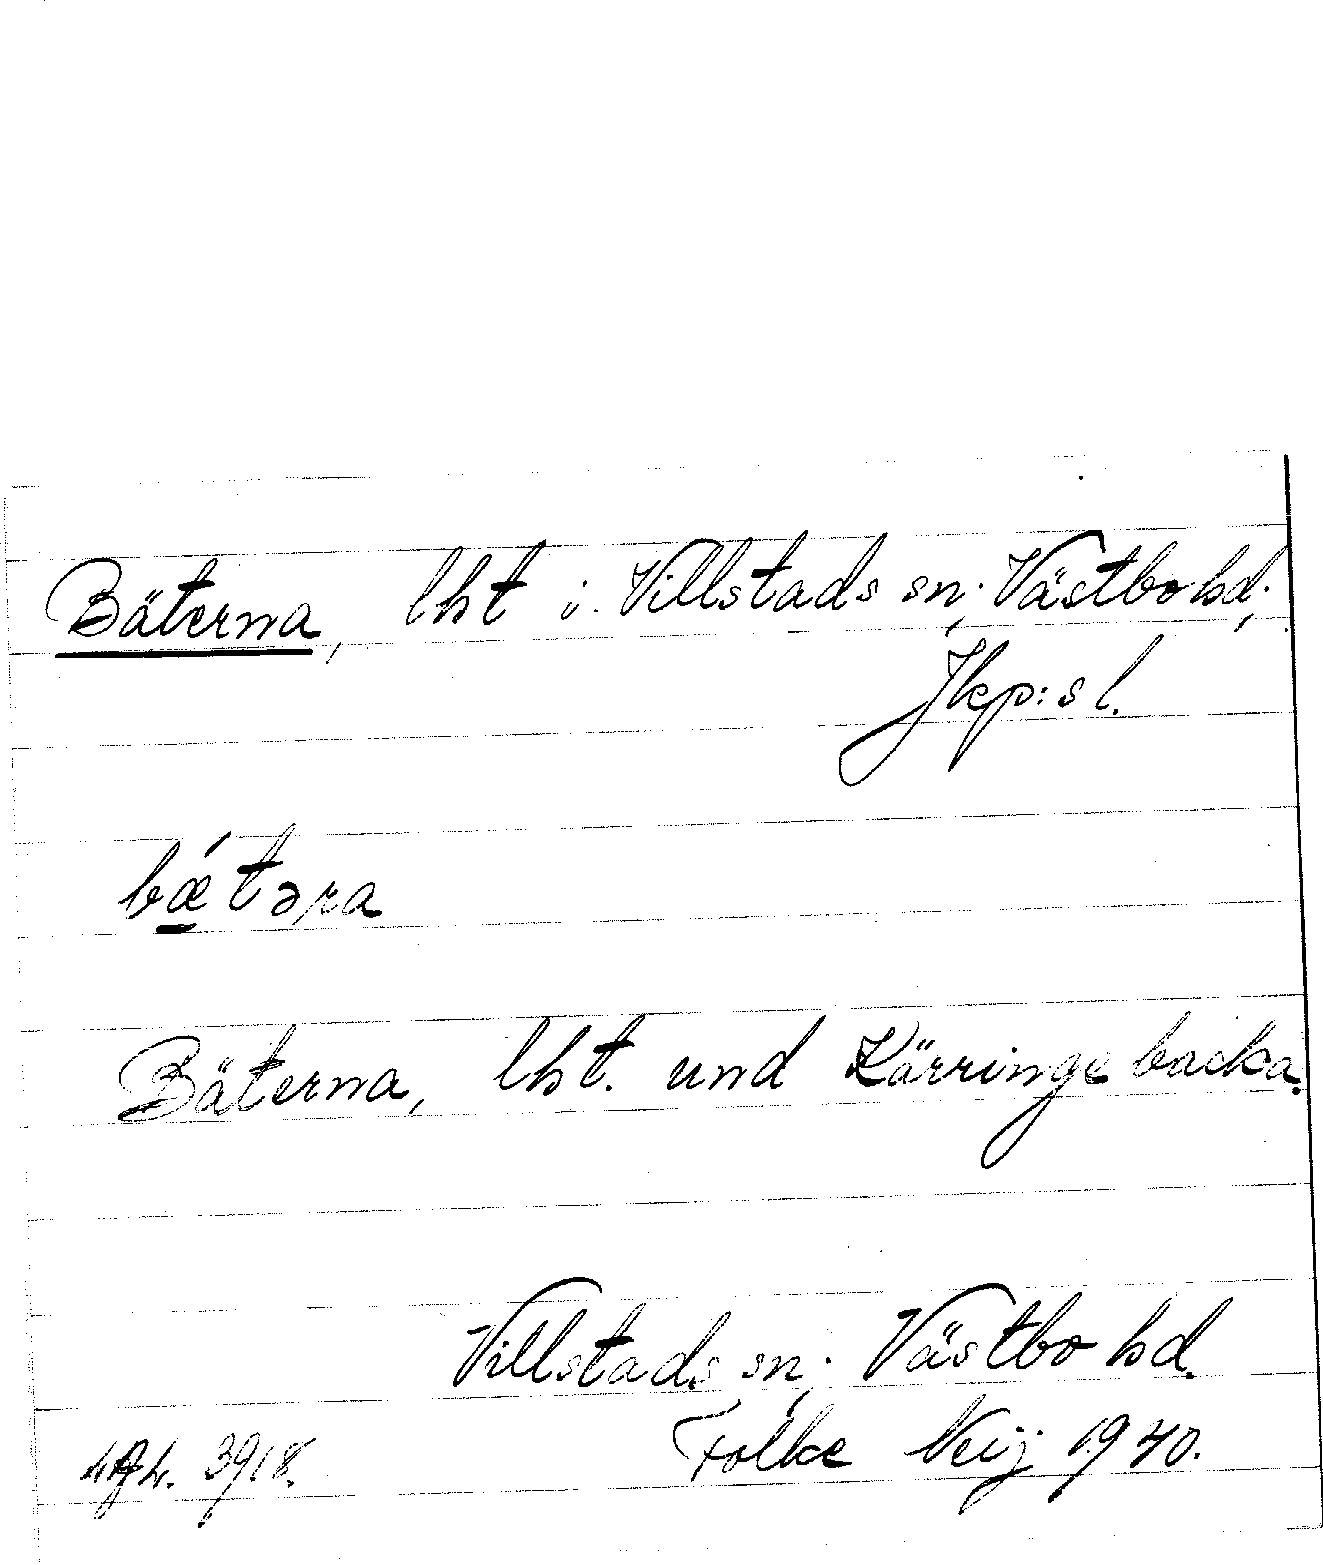 Bäterna, lht i. Villstads sn; Västbo hd;
Jkp:s l.
bǽtəra
Bäterna, lht. und Kärringebacka.
Villstads sn; Västbo hd.
Folke Neij 1940.
3918.